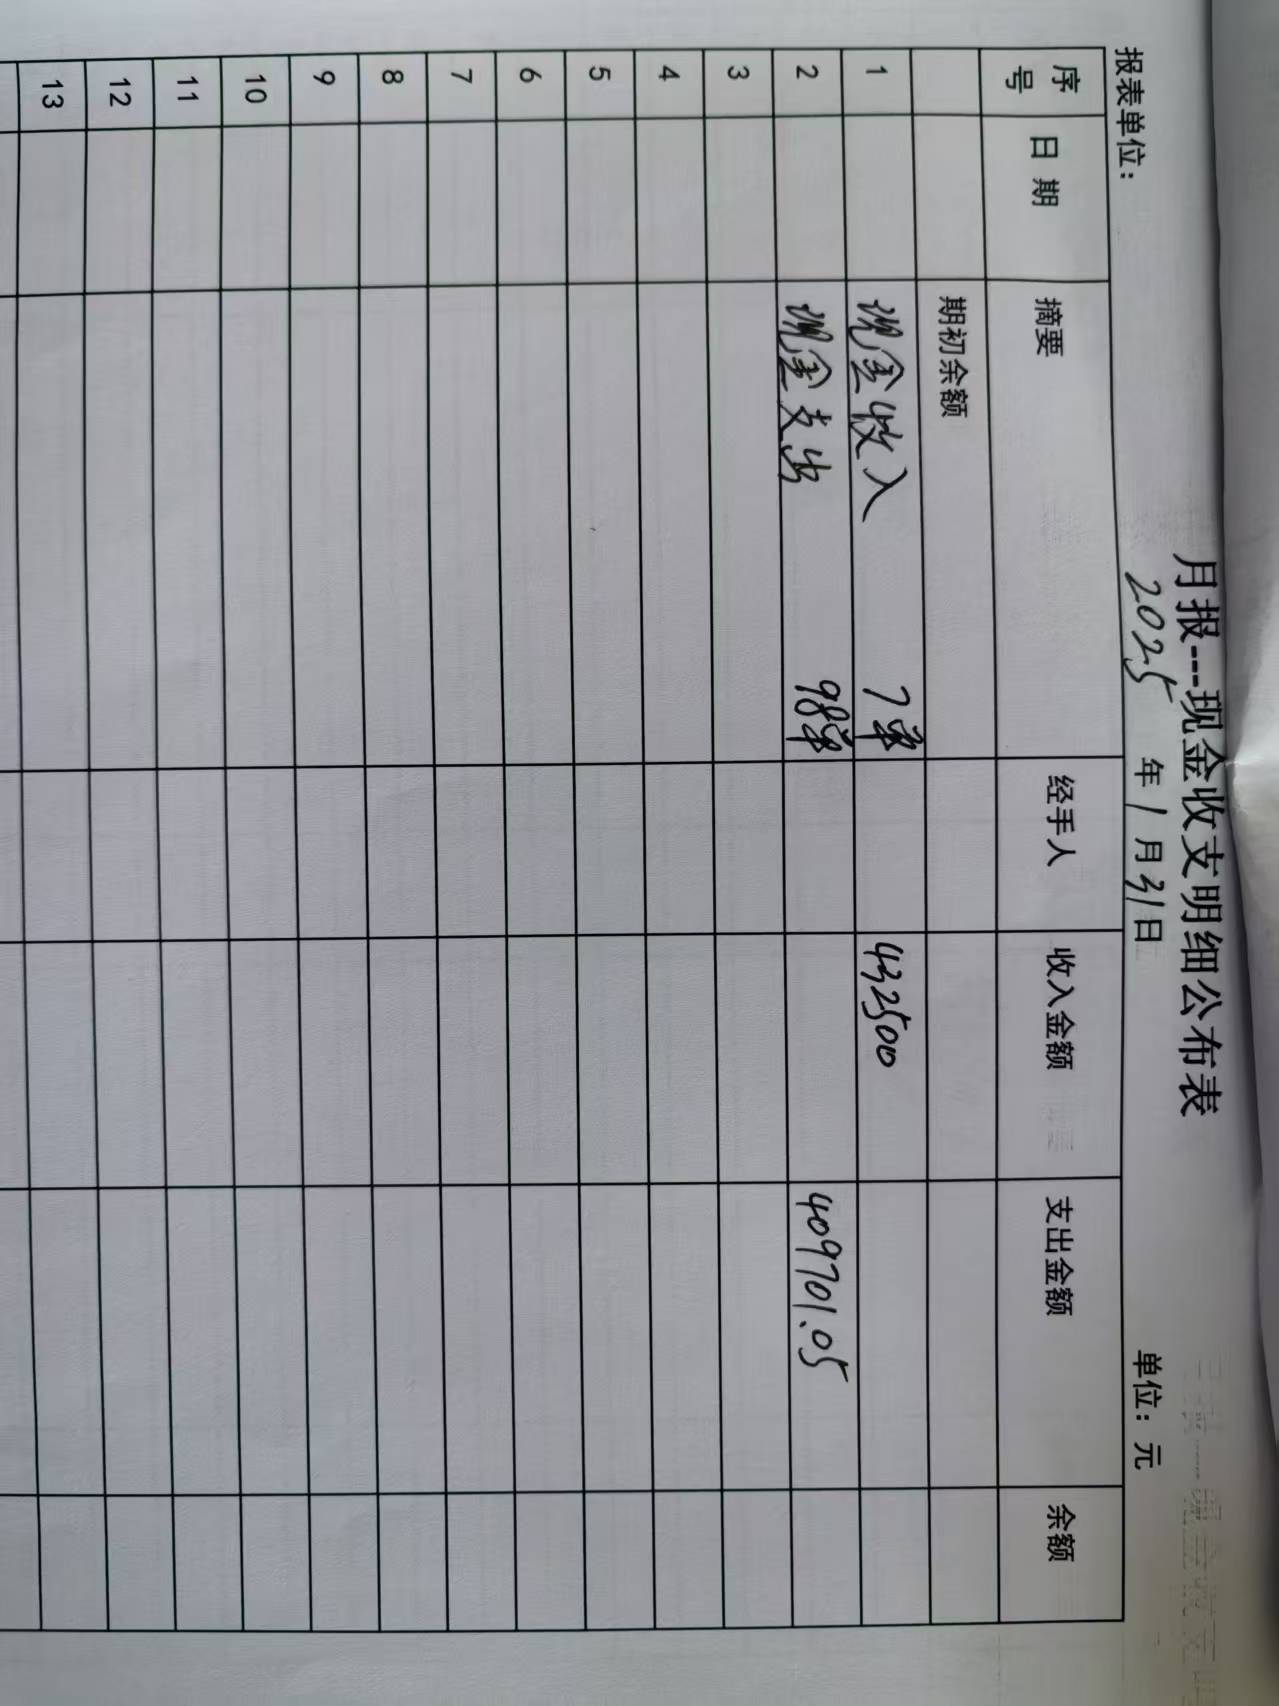 月报---现金收支明细公布表
2025 年 1 月 31 日
报表单位： 单位：元
序号 日期 摘要 经手人 收入金额 支出金额 余额
期初余额
1 现金收入 7单 432500
2 现金支出 98单 409701.05
3
4
5
6
7
8
9
10
11
12
13